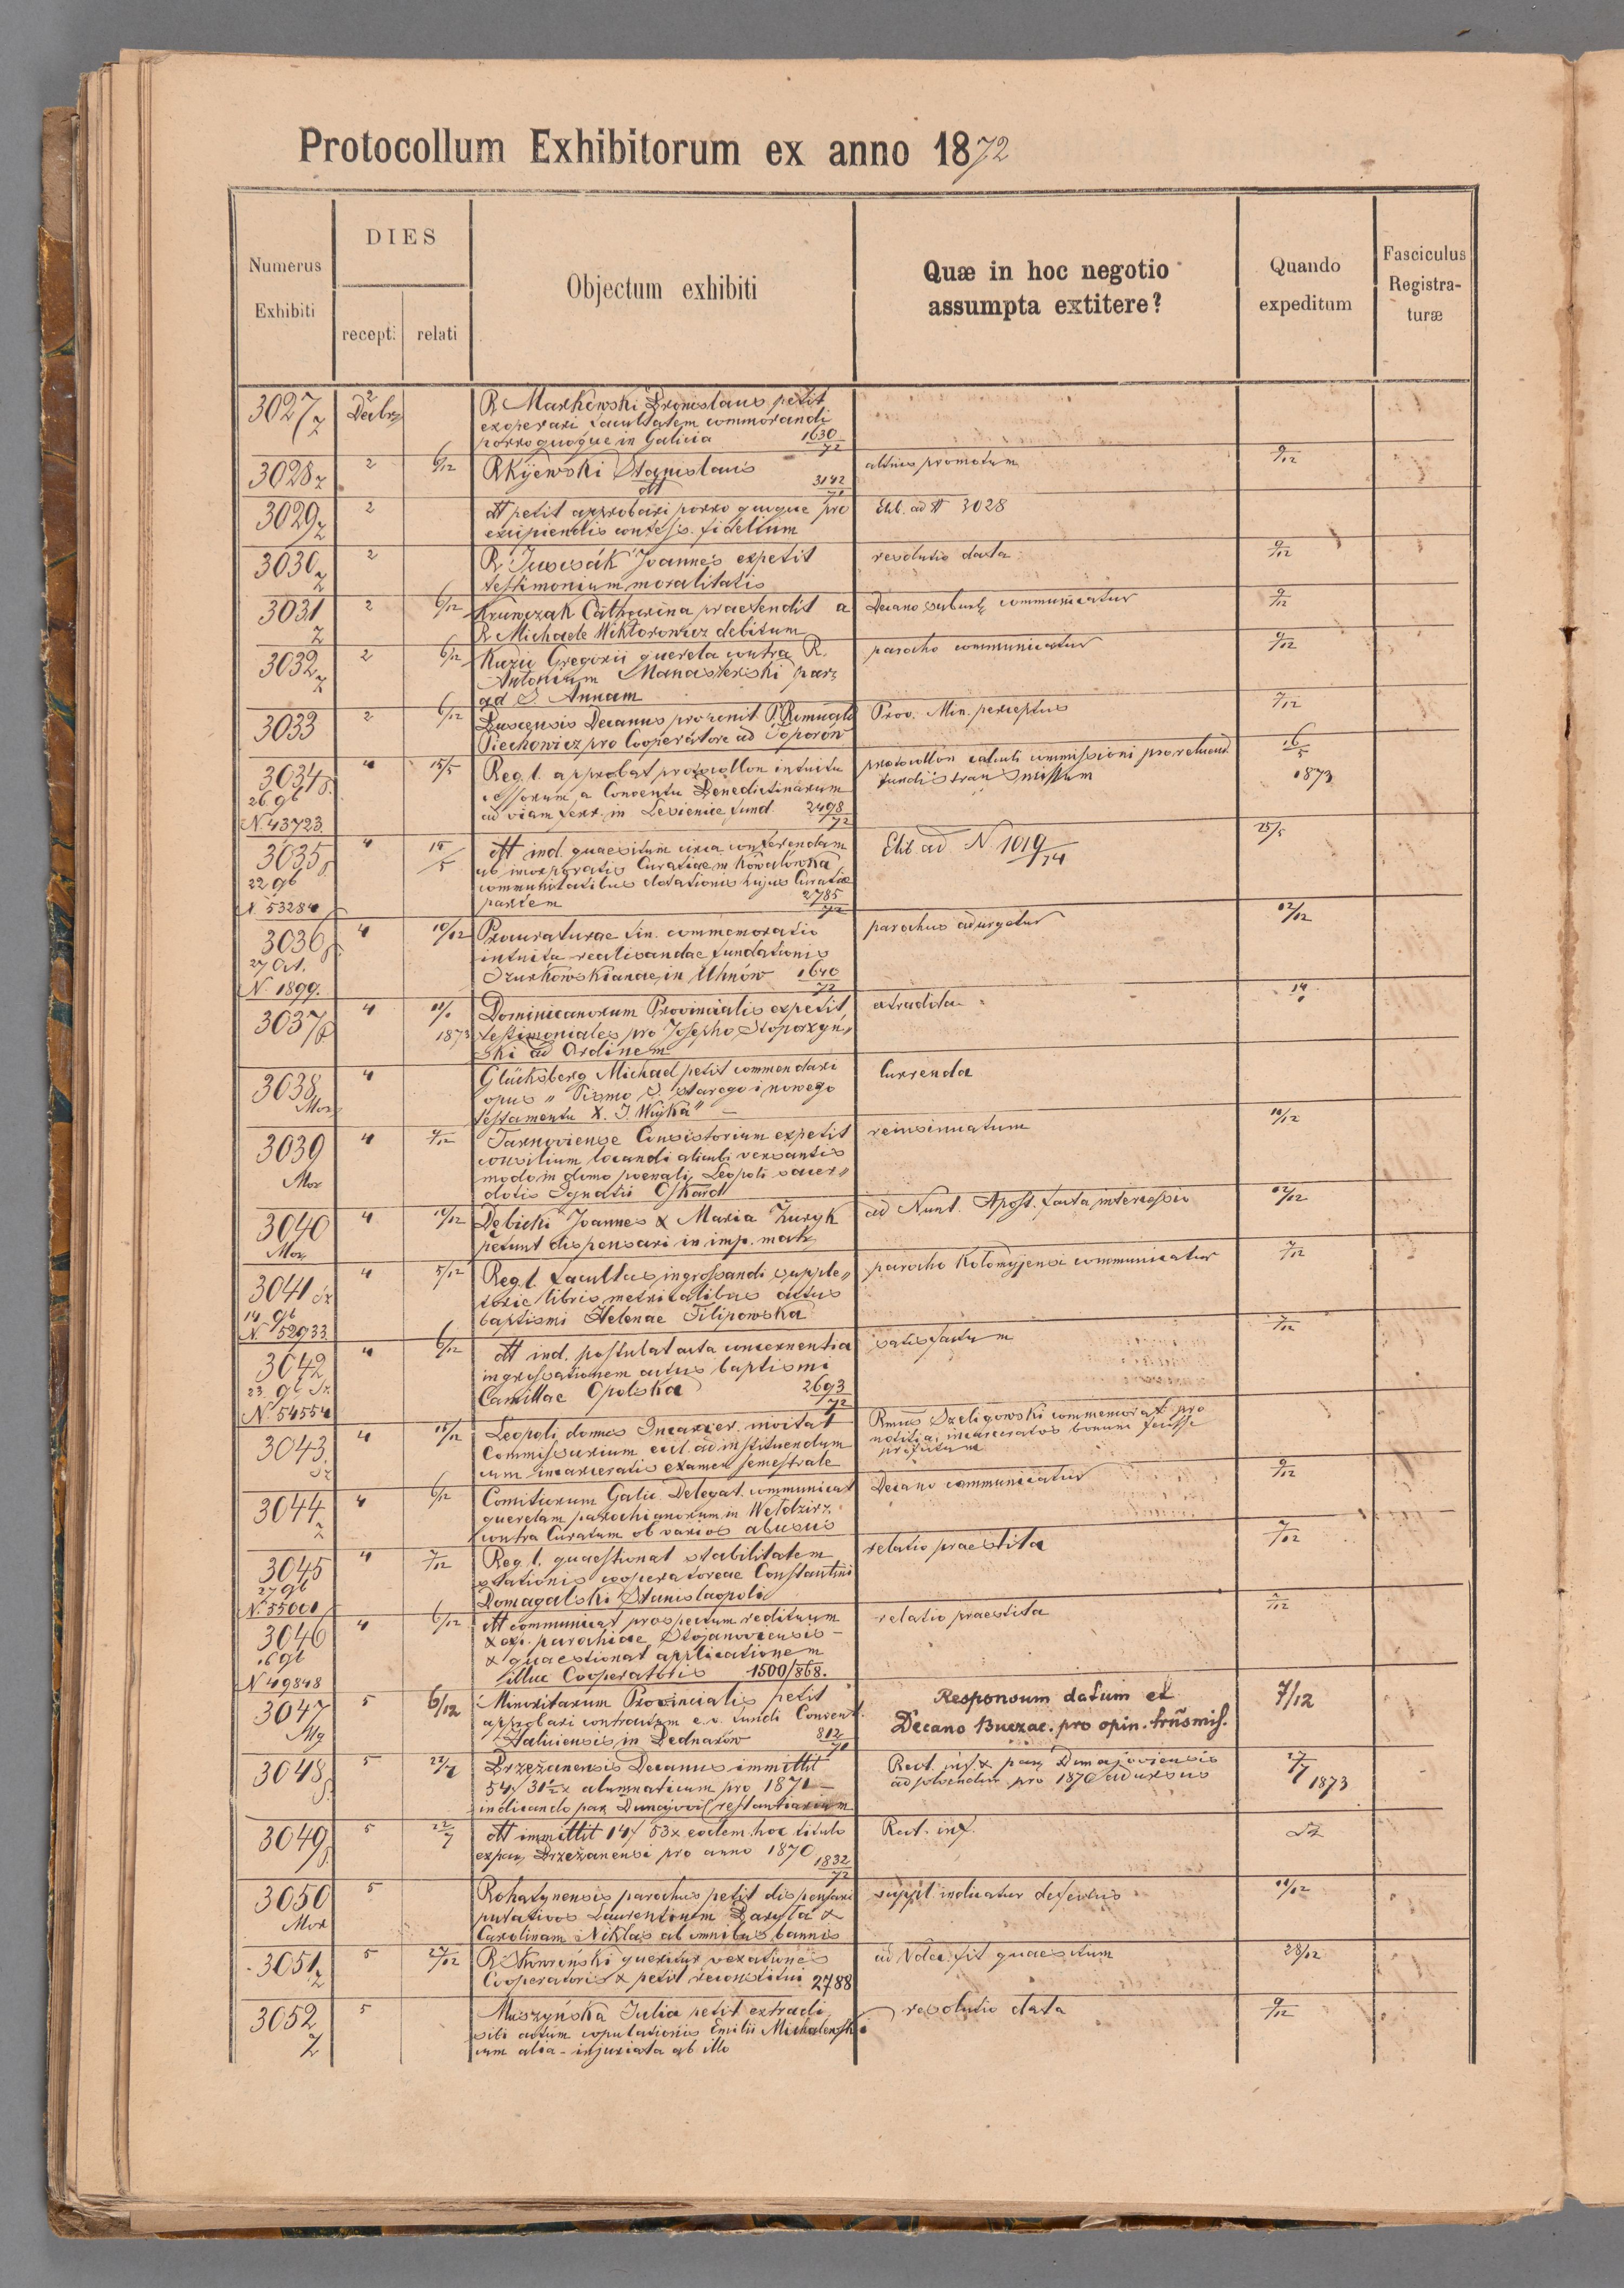 Protocollum Exhibitorum ex anno 1872
Numerus Exhibiti
DIES
recepti
relati
Objectum exhibiti
Quæ in hoc negotio
assumpta extitere?
Quando
expeditum
Fasciculus
Registra-
turæ
3027 2
R. Markowski Bronislaus petit
exoperari facultatem commorandi
porro quoque in Galicia 1630/72
3028 2 6/12
Kijewski Stanislaus 3142
altius promotum 9/12
3029 2
petit approbari porro quoque pro
excipiendis confess. fidelium
Elib. ad N 3028
3030 2
Joannes expetit
testimonium moralitatis
resolutio data 9/12
3031 2 6/12
Krawczak Catharina praetendit a
R. Michaele Wiktorowicz debitum
Decano communicatur 9/12
3032 2 6/12
Kuzio Gregorii querela contra R.
Antonium Manasterski par.
ad S. Annam
parocho communicatur 9/12
3033 2 6/12
Buscensis Decanus pro venit. P. Romuald
Piechowicz pro Cooperatore ad Toporów
Prov. Min. perceptus 7/12
3034 4 15/5
26 9b
N. 43723
Reg. l. approbat protocollon intuitu
a Conventu Benedictinarum
ad viam ferr. in fund. 2498/72
protocollon calculi commissioni pro
fundis transmissum
16/5 1873
3035 4 15/5
22 9b
N. 53284
ind. quaesitum circa conferendam
ab incorporatis Curatiae in Kowalówka
communitatibus dotationis hujus Curatiae
partem 2785/72
Elib ad N 1019/74
25/5
3036 4 10/12
27 Oct.
N. 1899.
Procuraturae fin. commemoratio
intuitu realisandae fundationis
Szurkowskianae in Uhnów 1640/72
parochus adurgetur 12/12
3037 4
1873
Dominicanorum Provincialis expetit
testimoniales pro Josepho Stoporzyn„
ski ad Ordinem
extradita
3038 4
Mor
Glücksberg Michael petit commendari
opus „Pismo S. starego i nowego
testamentu X. J. Wujka" –
Currenda
3039 4 9/12
Mor
Tarnoviense Consistorium expetit
consilium locandi alicubi versantis
modo in domo poenali Leopoli sacer„
dotis Ignatii
reinsinuatum 10/12
3040 4 10/12
Mor
Dębicki Joannes & Maria Zuryk
petunt dispensari in imp. matr.
ad Nunt. Apost. facta intercessio 12/12
3041 4 5/12
14 9b
N. 52933
Reg. l. facultas ingrossandi supple„
torie libris metricalibus actus
baptismi Helenae Filipowska
parocho Kolomyjensi communicatur 7/12
3042 4 6/12
23. 9b
N. 54554
ind. postulat acta concernentia
ingrossationem actus baptismi
Camillae Opolska 2693/72
satisfactum 7/12
3043 4 15/12
Leopoli domus Incarcer. invitat
Commissarium eccl. ad instituendum
cum incarceratis examen semestrale
Rmus Szeligowski commemorat pro
notitia, incarceratos bonum fecisse
3044 4 6/12
Comiturum Galic. Delegat. communicat
querelam parochianorum in Wełdzirz
contra Curatum ob varios abusus
Decano communicatur 9/12
3045 4 7/12
27 9b
Reg. l. quaestionat stabilitatem
stationis cooperatoreae Constantini
Domagalski Stanislaopoli
relatio praestita 7/12
3046 4 6/12
16 9b
N 49848
communicat prospectum redituum
& exp. parochiae Stojanoviensis –
& quaestionat applicationem
illuc Cooperatoris 1500/868.
relatio praestita 7/12
3047 5 6/12
Mg
Minoritarum Provincialis petit
approbari contractum fundi Convent.
Haliciensis in Bednarów 812
Responsum datum et
Decano Buczac. pro opin. trñsmis.
7/12
3048 5 22/7
Brzeżanensis Decanus immittit
alumnaticum pro 1871 –
indicando par. Dunajoviensem restantiarium
Rect. inf. & par. Dunajoviensis
ad solvendum pro 1870
27/7 1873
3049 5 22/7
immittit 14f 53x eodem hoc titulo
ex par. Brzeżanensi pro anno 1870 1832/72
Rect. inf.
3050 5
Mor
Rohatynensis parochus petit dispensari
putativos Laurentium Baryła &
Carolinam Niklas ab omnibus bannis
suppl. indicatur defectus
3051 5 27/12
queritur vexationes
Cooperatoris & petit reconstitui 2788
fit quaesitum 28/12
3052 5
Muszyńska Julia petit extradi
sibi actum copulationis Emilii Michalewski
cum alia – injuriata ab illo
resolutio data 9/12